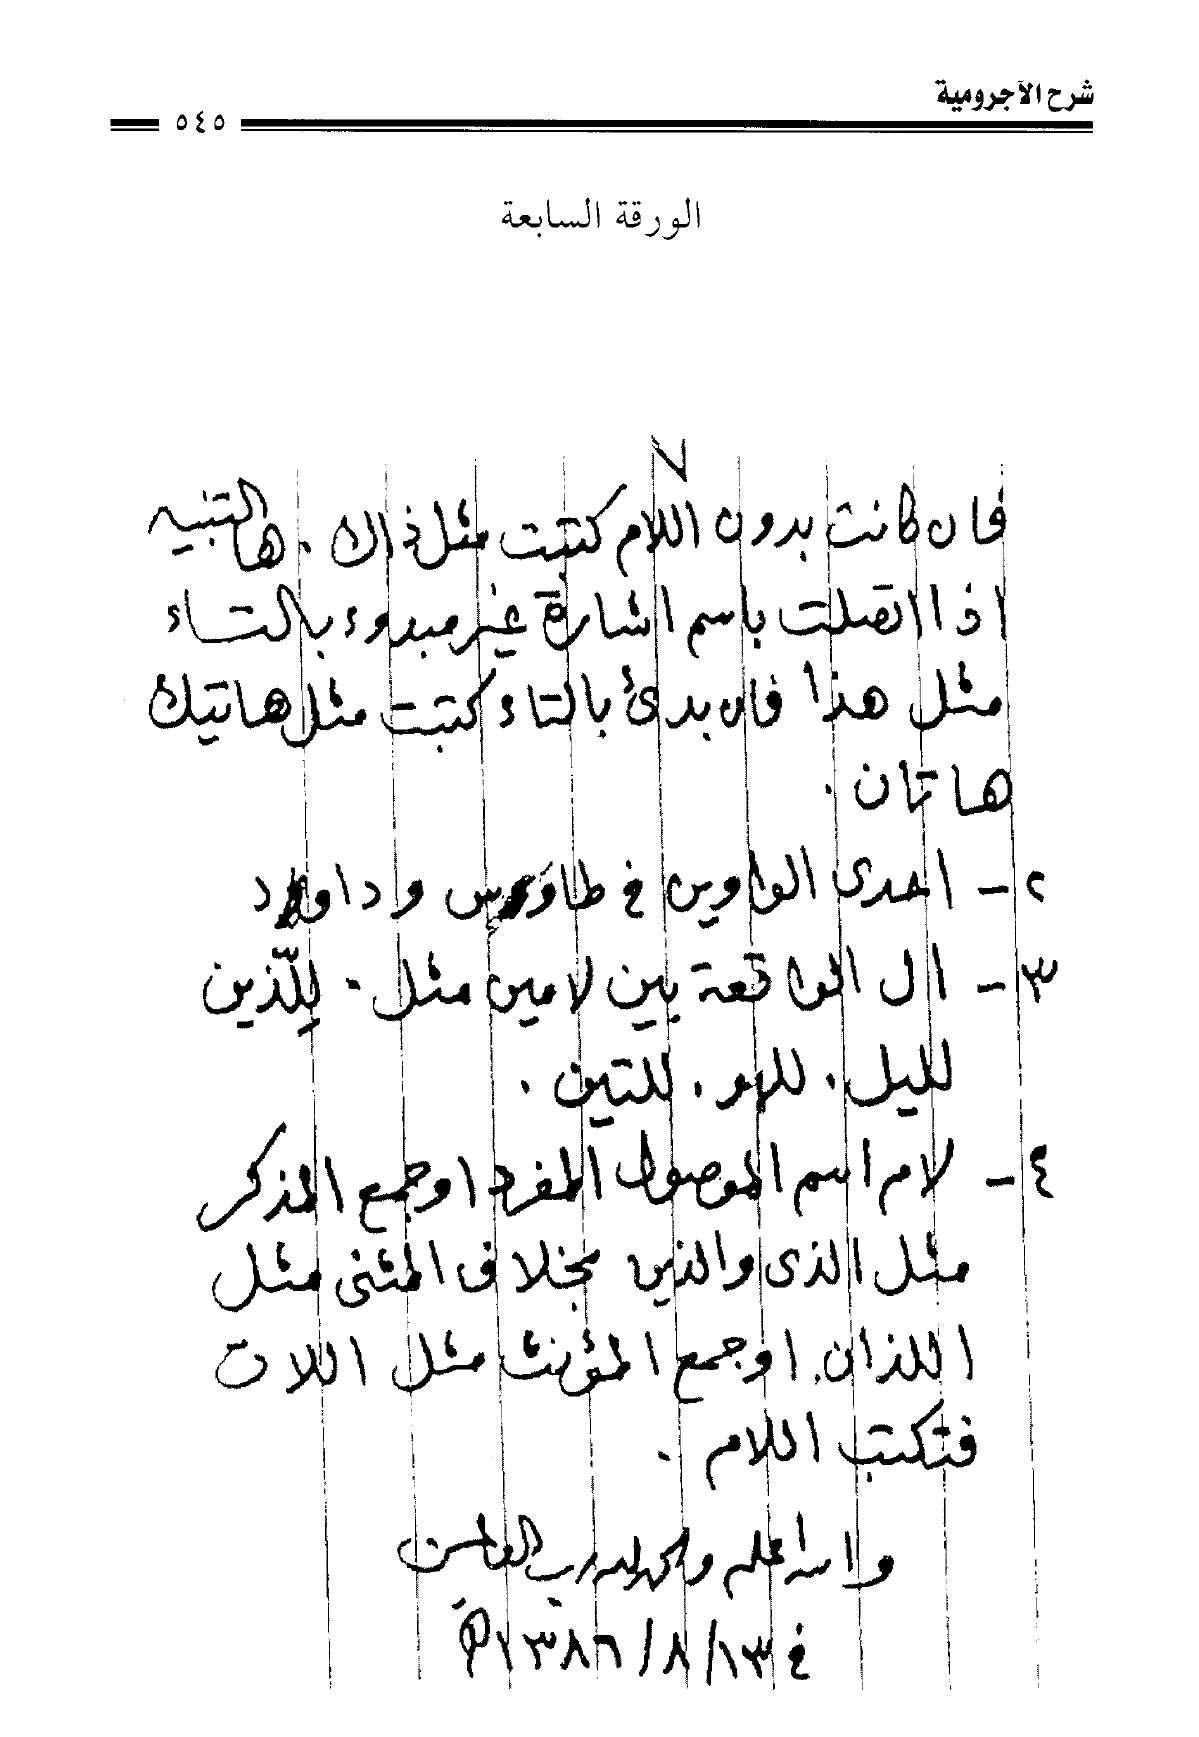 شرح الآجرومية
٥٤٥
الورقة السابعة
٧
فان كانت بدون اللام كتبت مثل ذاك . ها التنبيه
اذا اتصلت باسم اشارة غير مبدوء بالتاء
مثل هذا فان بدئ بالتاء كتبت مثل هاتيك
هاتان .
٢ - احدى الواوين في طاوس و داود
٣ - ال الواقعة بين لامين مثل . لِلّذين
لليل . للهو . للتين .
٤ - لام اسم الموصول المفرد او جمع المذكر
مثل الذى والذين بخلاف المثنى مثل
اللذان. او جمع المؤنث مثل اللات
فتكتب اللام .
والله اعلم والحمد لله رب العالمين
في ١٣/٨/١٣٨٦ه